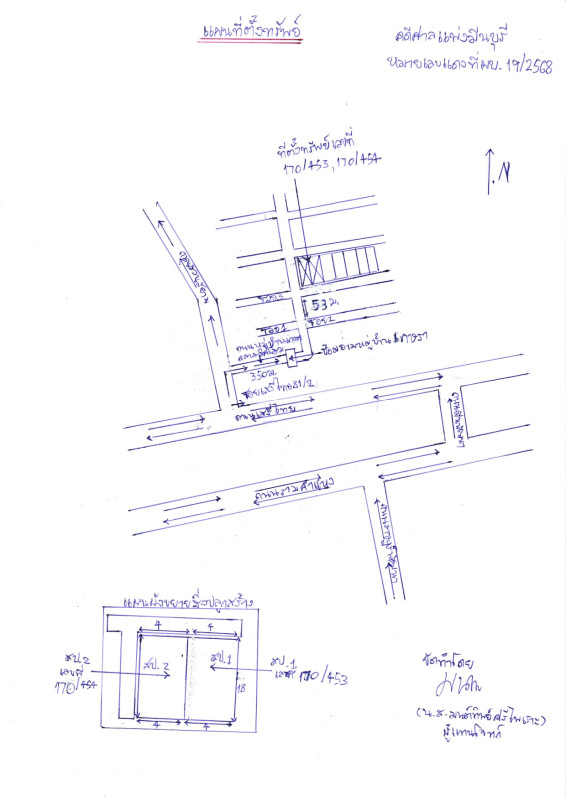 แผนที่ตั้งทรัพย์
คดีศาลแพ่งมีนบุรี
หมายเลขแดงที่ ผบ. 19/2568
ที่ตั้งทรัพย์เลขที่
170/453, 170/454
N
ซอย 3
53 ม.
ซอย 2
ซอย 1
ป้อมยามหมู่บ้าน
350 ม.
ซอยเสรีไทย 81/2
ถนนเสรีไทย
ถนนรามคำแหง
แผนผังขยายสิ่งปลูกสร้าง
4
4
สป. 2
เลขที่
170/454
สป. 2
สป. 1
18
สป. 1
เลขที่ 170/453
4
4
จัดทำโดย
ผู้แทนโจทก์